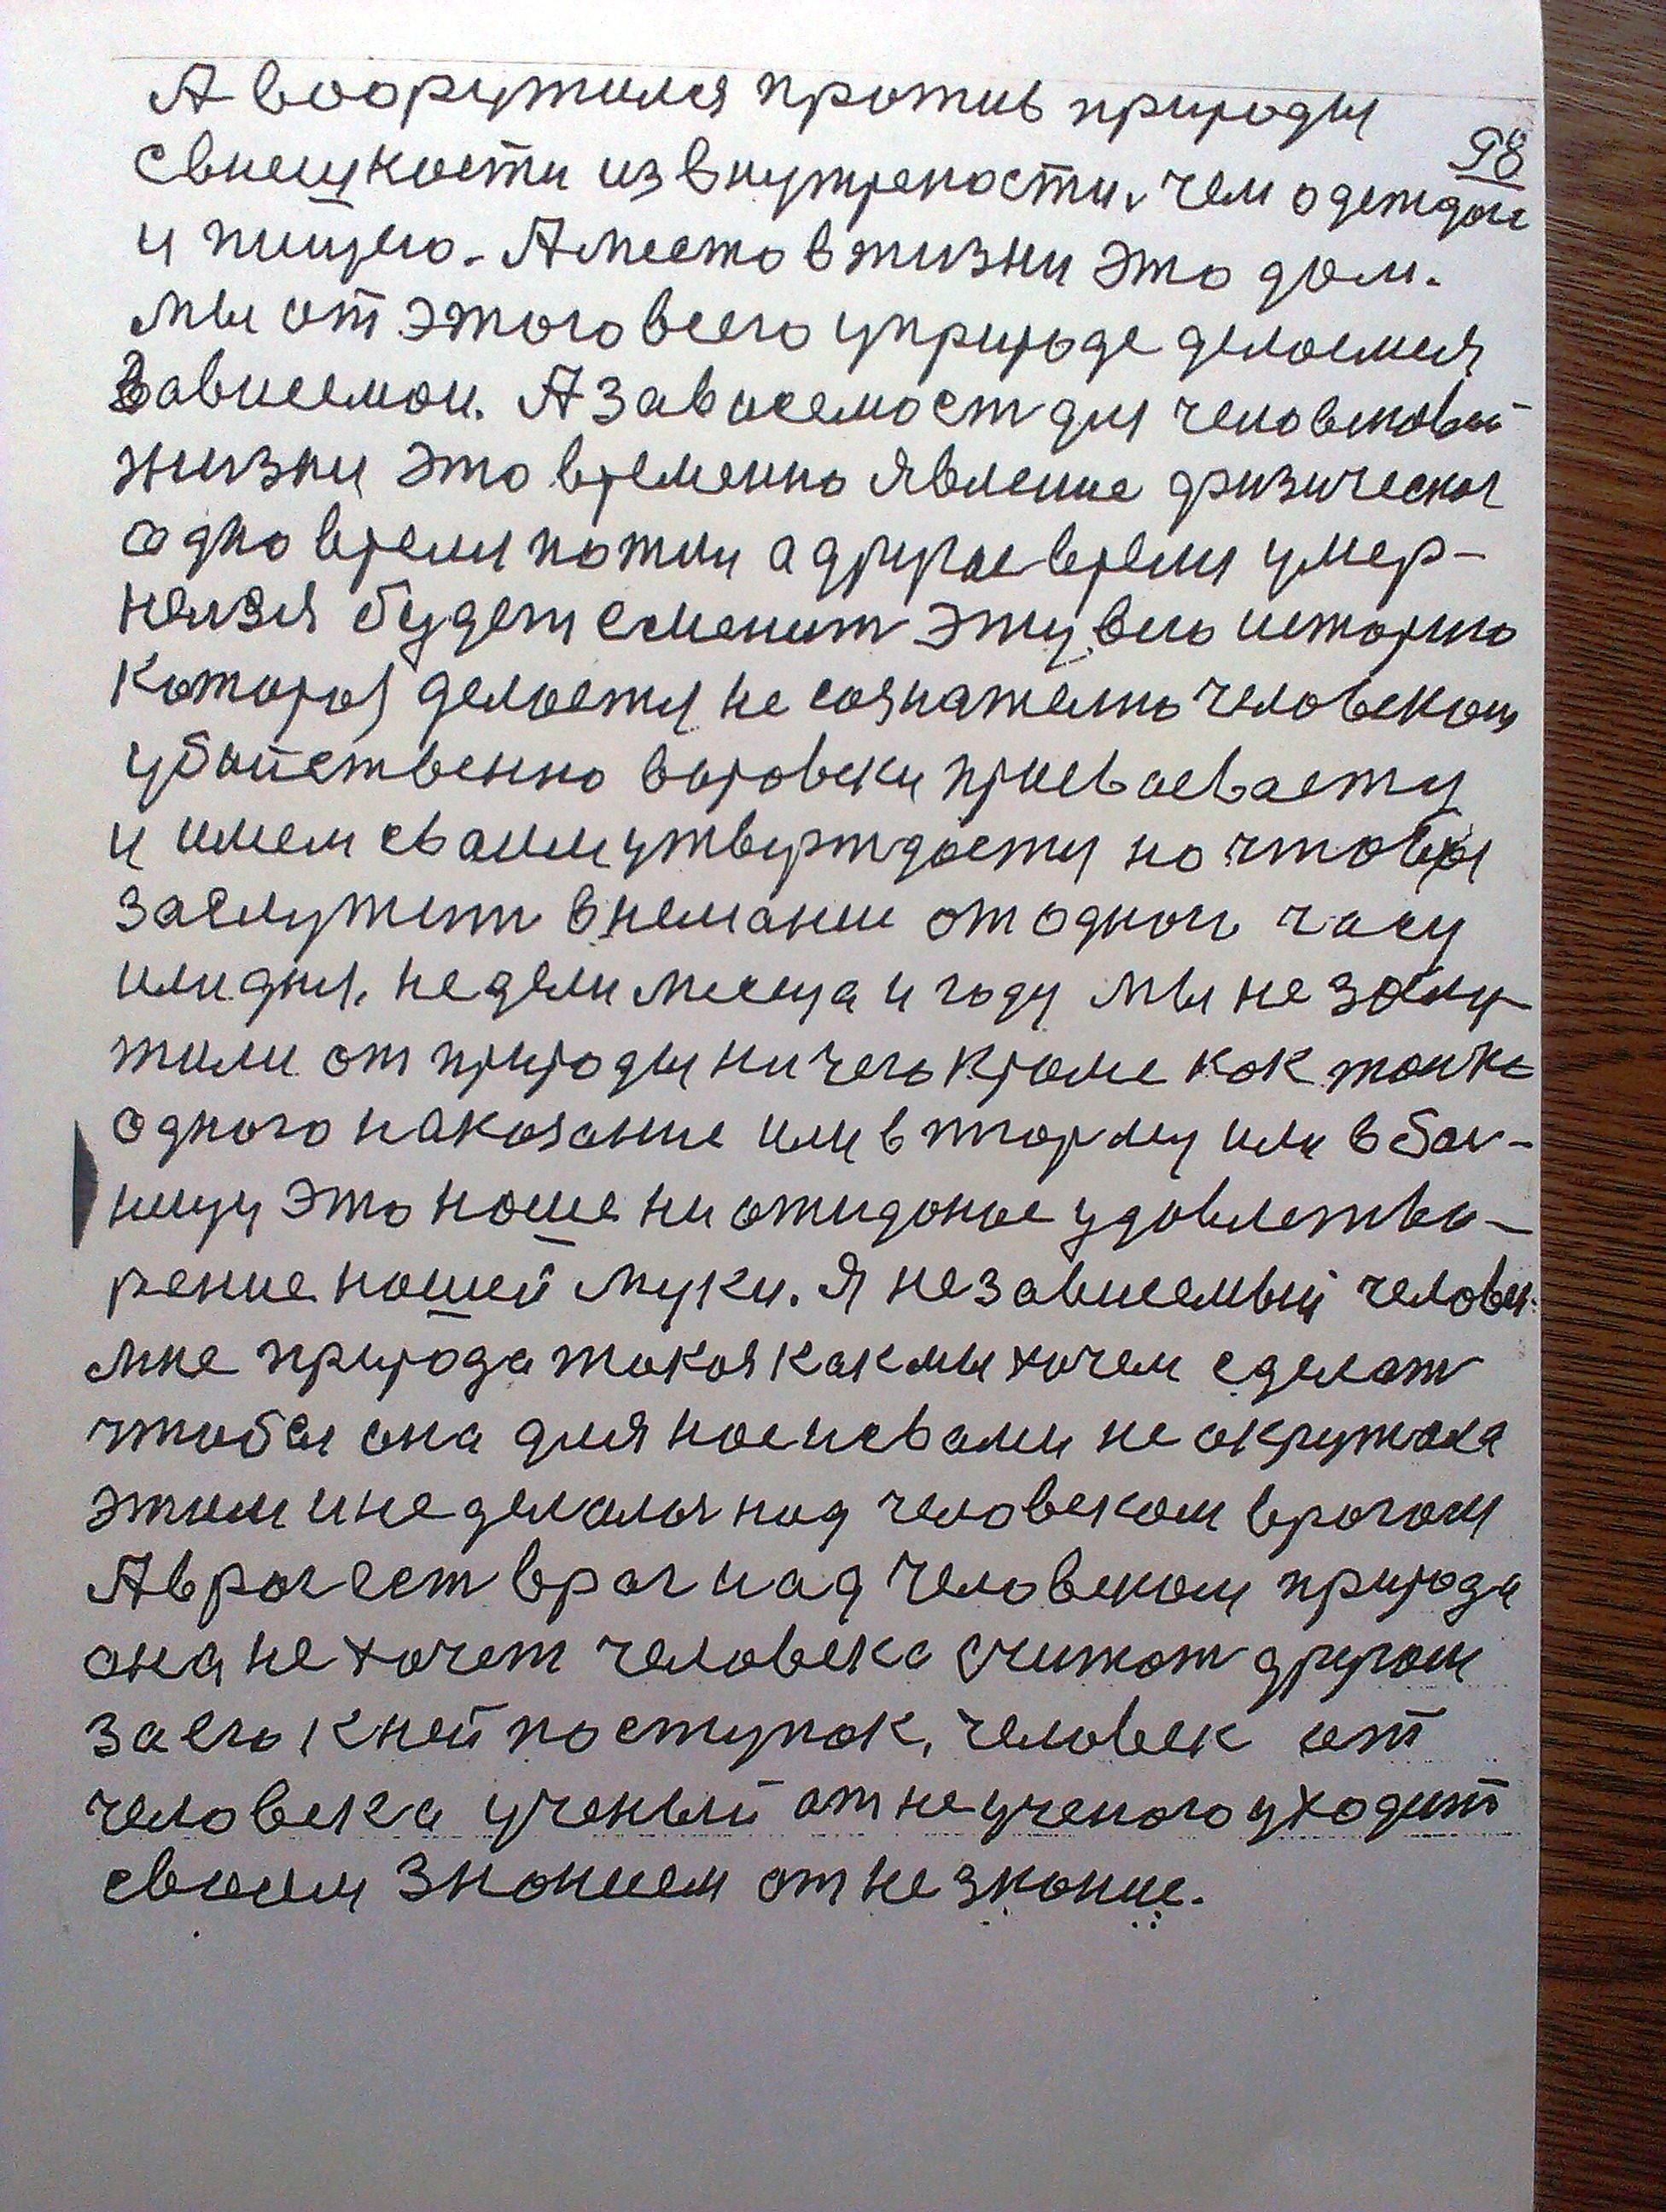 А вооружился против природы
98
свнешкости извнутрености, чем одеждои
и пищею. А место в жизни это дом.
мы от этого всего уприроде делоемся
зависемои. А зависемост для человековой
жизни это временно явление физическоя
одно время пожил а другое время умер-
нельзя будет сменит эту всю историю
котороя делоетця не сознателно человеком
убыйственно воровски присваеваетця
и имем сваим утверждоетця но чтобы
заслужит внемание от одног часу
или дня, недели месеца и году мы не заслу-
жили от природы ничего кроме как только
одного накозание или в тюрму или в бол-
ницу это ноше ни ожидоное удовлетво-
рение ношей муки. Я независемый человек.
мне природа такоя как мы хочем сделат
чтобы она для нос исвами не окружала
этим и не делалая над человеком врогом
А врог ест враг над человеком природа
она не хочет человека считат другом
за его к ней поступок, человек от
человека ученый от не ученого уходит
своим знонием от не зконие.